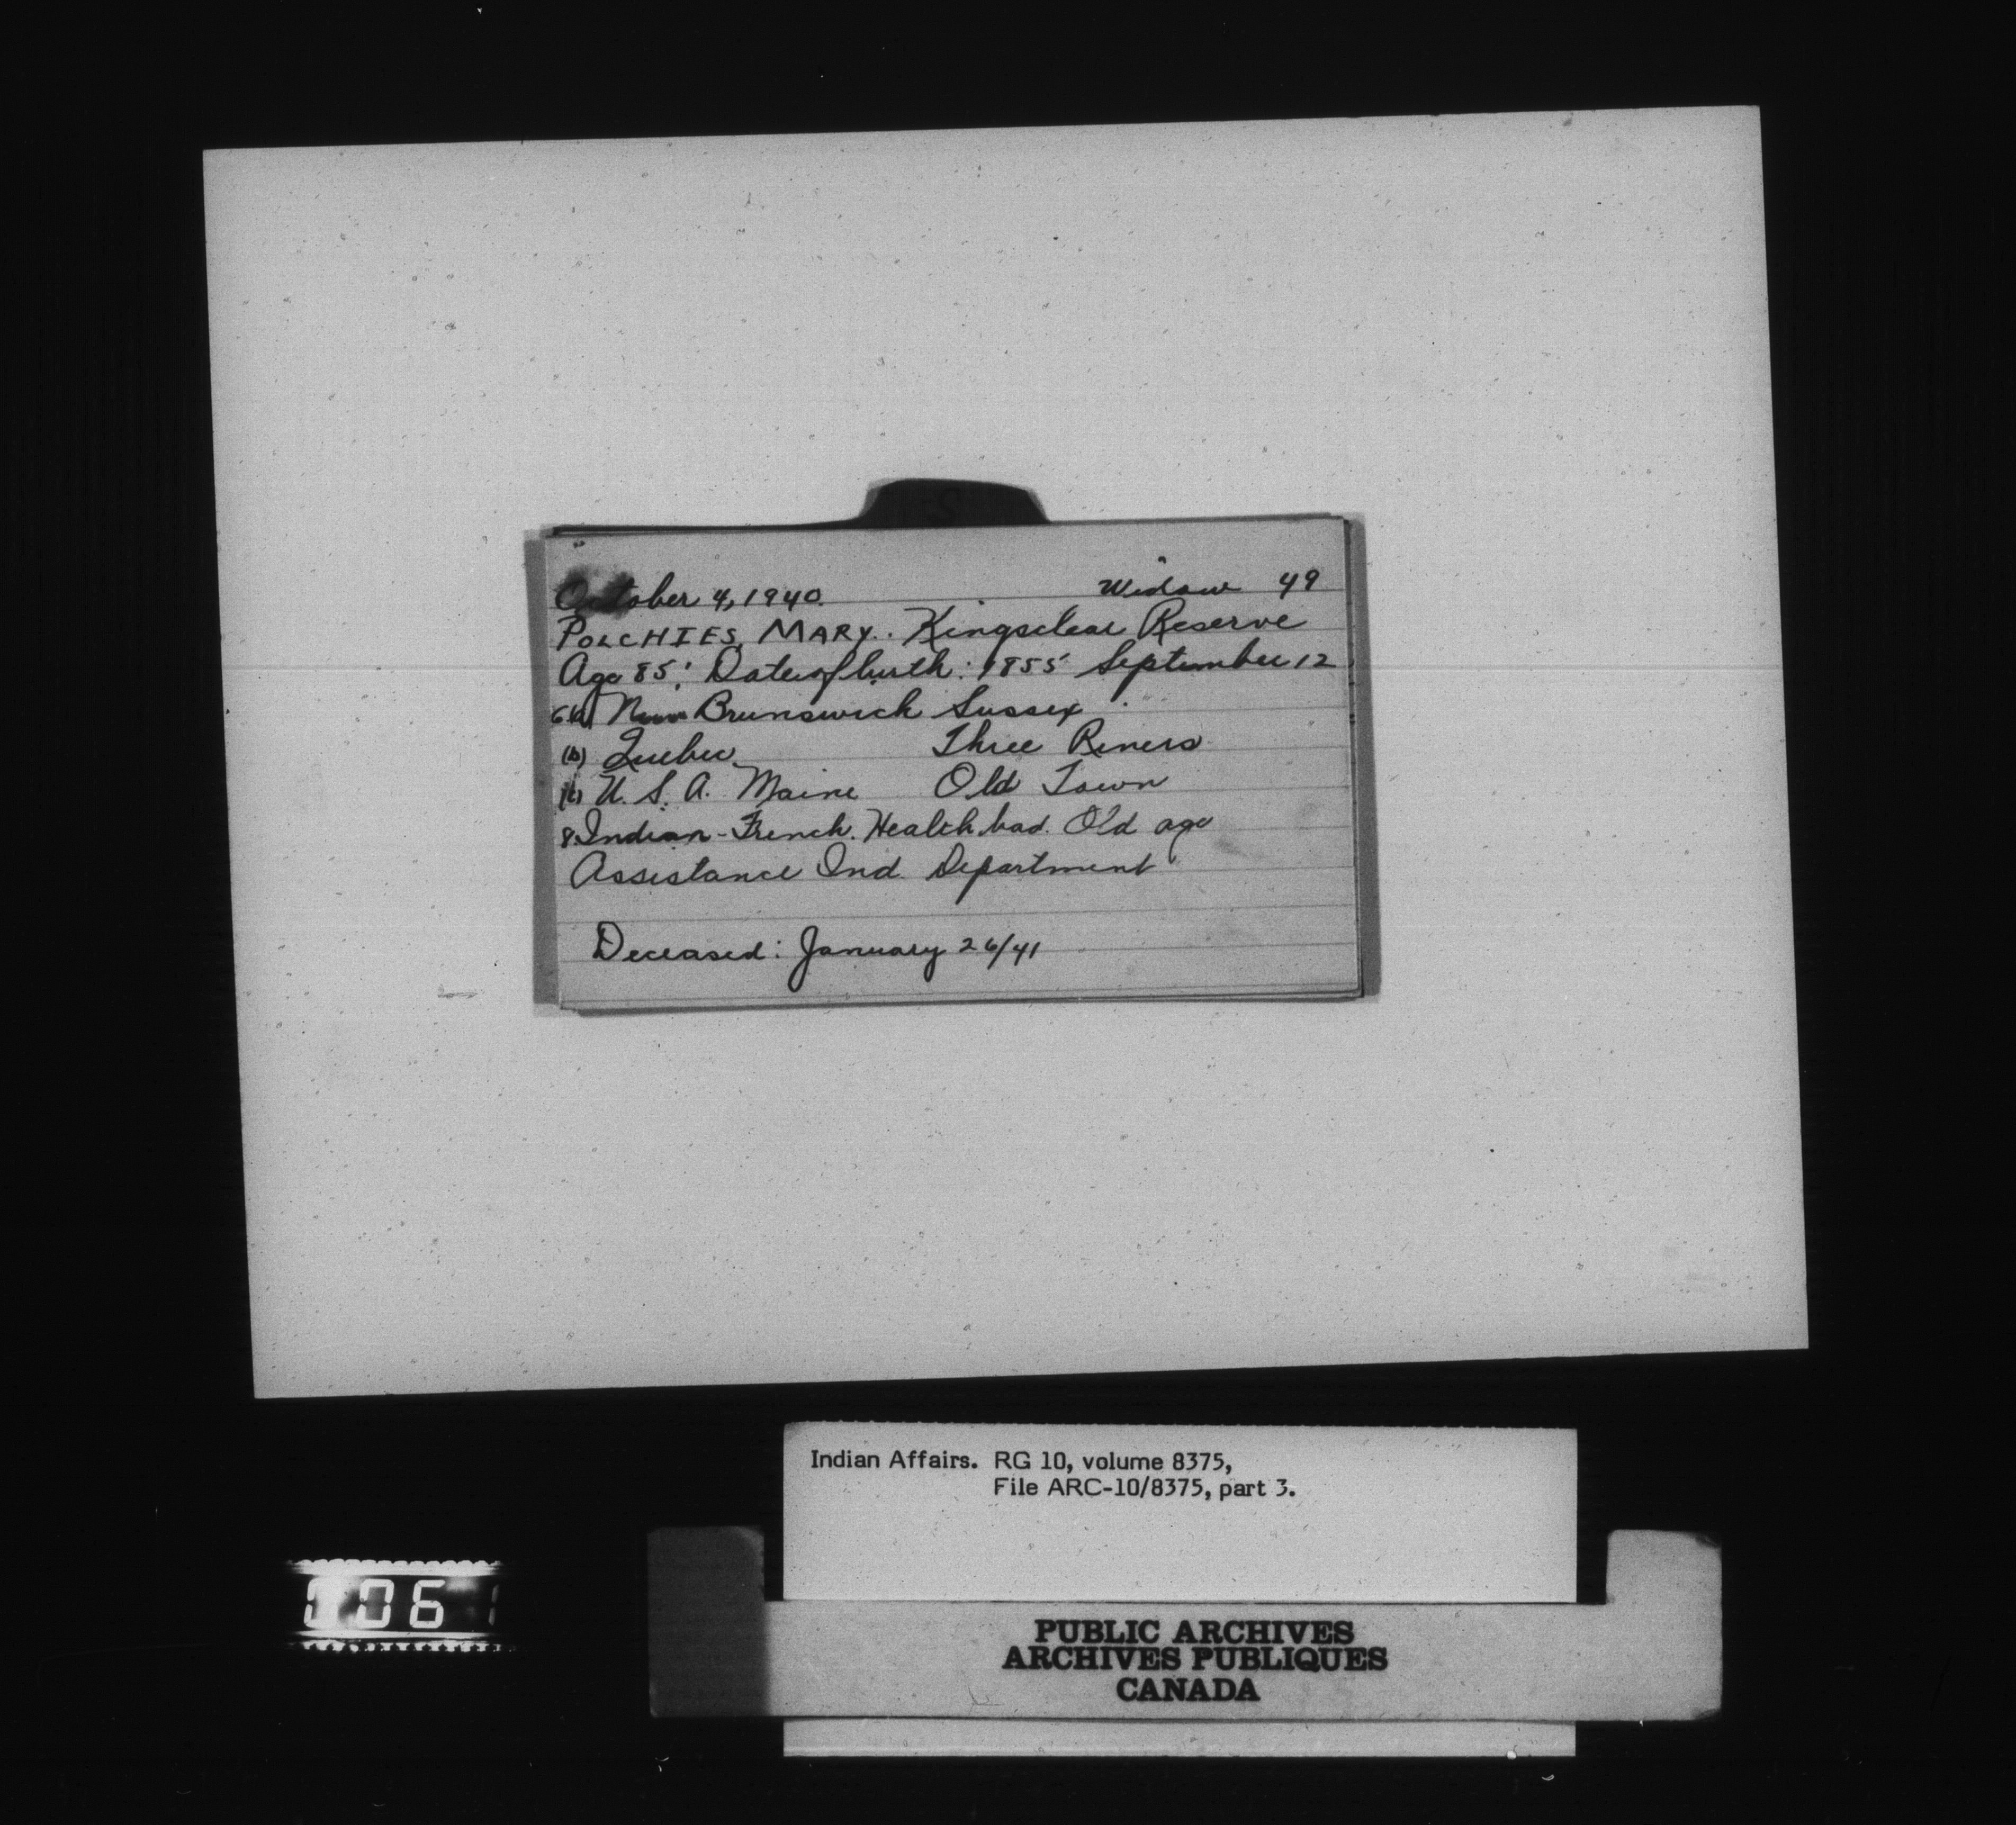 S
October 4, 1940. Widow 49
POLCHIES, MARY. Kingsclear Reserve
Age 85: Date of birth: 1855 September 12
6(a) New Brunswick Sussex
(b) Quebec Three Rivers
(c) U. S. A. Maine Old Town
8. Indian-French. Health bad. Old age
Assistance Ind. Department
Deceased: January 26/41
Indian Affairs. RG 10, volume 8375,
File ARC-10/8375, part 3.
PUBLIC ARCHIVES
ARCHIVES PUBLIQUES
CANADA